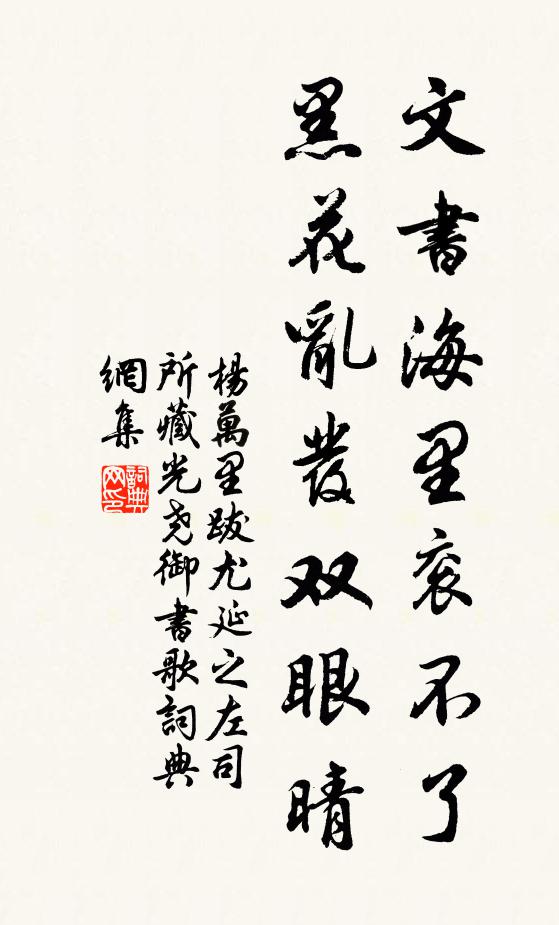 文書海里衮不了
黑花亂發双眼晴
楊萬里跋尤延之左司
所藏光尧御書歌詞典
網集
詞典网印